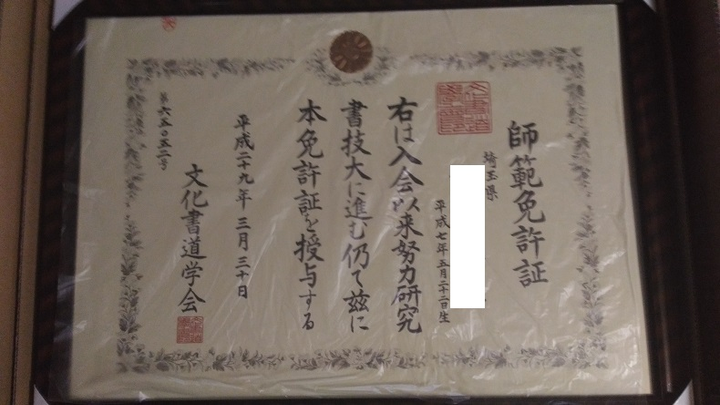 師範免許証
埼玉県
平成七年五月二十二日生
右は入会以来努力研究
書技大に進む仍て茲に
本免許証を授与する
平成二十九年三月三十日
文化書道学会
第六五〇五二号